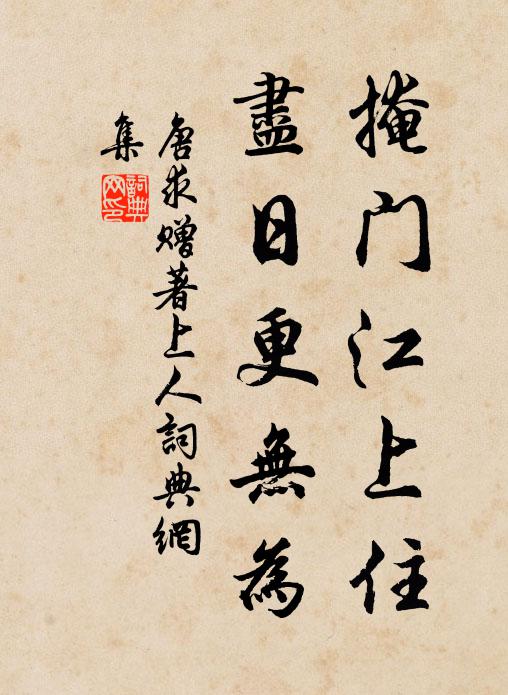 掩門江上住
盡日更無為
唐求贈著上人詞典網
集
詞典網印